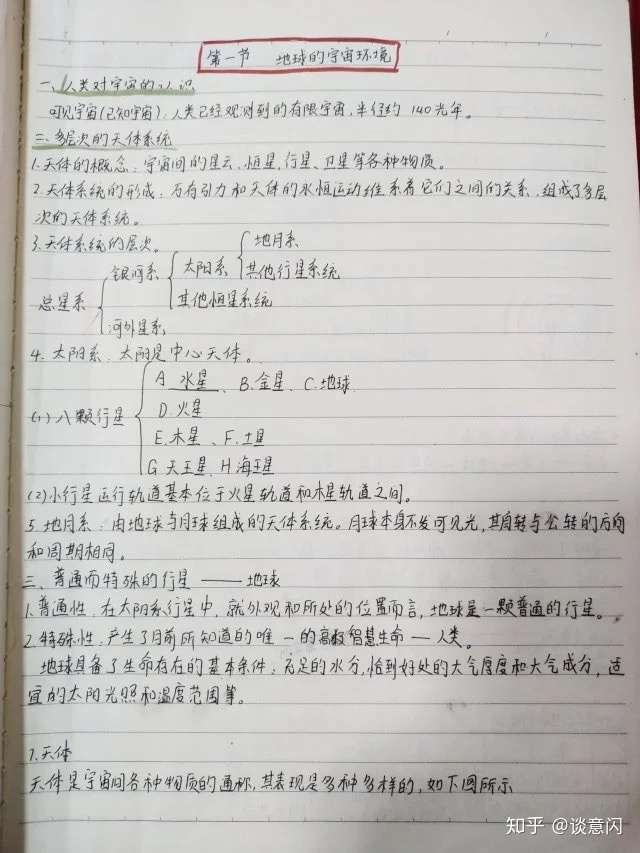 第一节 地球的宇宙环境
一、人类对宇宙的认识
可见宇宙(已知宇宙):人类已经观测到的有限宇宙,半径约 140光年。
二、多层次的天体系统
1.天体的概念:宇宙间的星云、恒星、行星、卫星等各种物质。
2.天体系统的形成:万有引力和天体的永恒运动维系着它们之间的关系,组成了多层
次的天体系统。
3.天体系统的层次。
总星系
银河系
太阳系
地月系
其他行星系统
其他恒星系统
河外星系
4.太阳系:太阳是中心天体。
(1)八颗行星
A.水星、B.金星、C.地球
D.火星
E.木星、F.土星
G.天王星、H.海王星
(2)小行星运行轨道基本位于火星轨道和木星轨道之间。
5.地月系:由地球与月球组成的天体系统。月球本身不发可见光,其自转与公转的方向
和周期相同。
三、普通而特殊的行星——地球
1.普通性:在太阳系行星中,就外观和所处的位置而言,地球是一颗普通的行星。
2.特殊性:产生了目前所知道的唯一的高级智慧生命—人类。
地球具备了生命存在的基本条件:充足的水分,恰到好处的大气厚度和大气成分,适
宜的太阳光照和温度范围等。
7.天体
天体是宇宙间各种物质的通称,其表现是多种多样的,如下图所示
知乎 @谈意闪